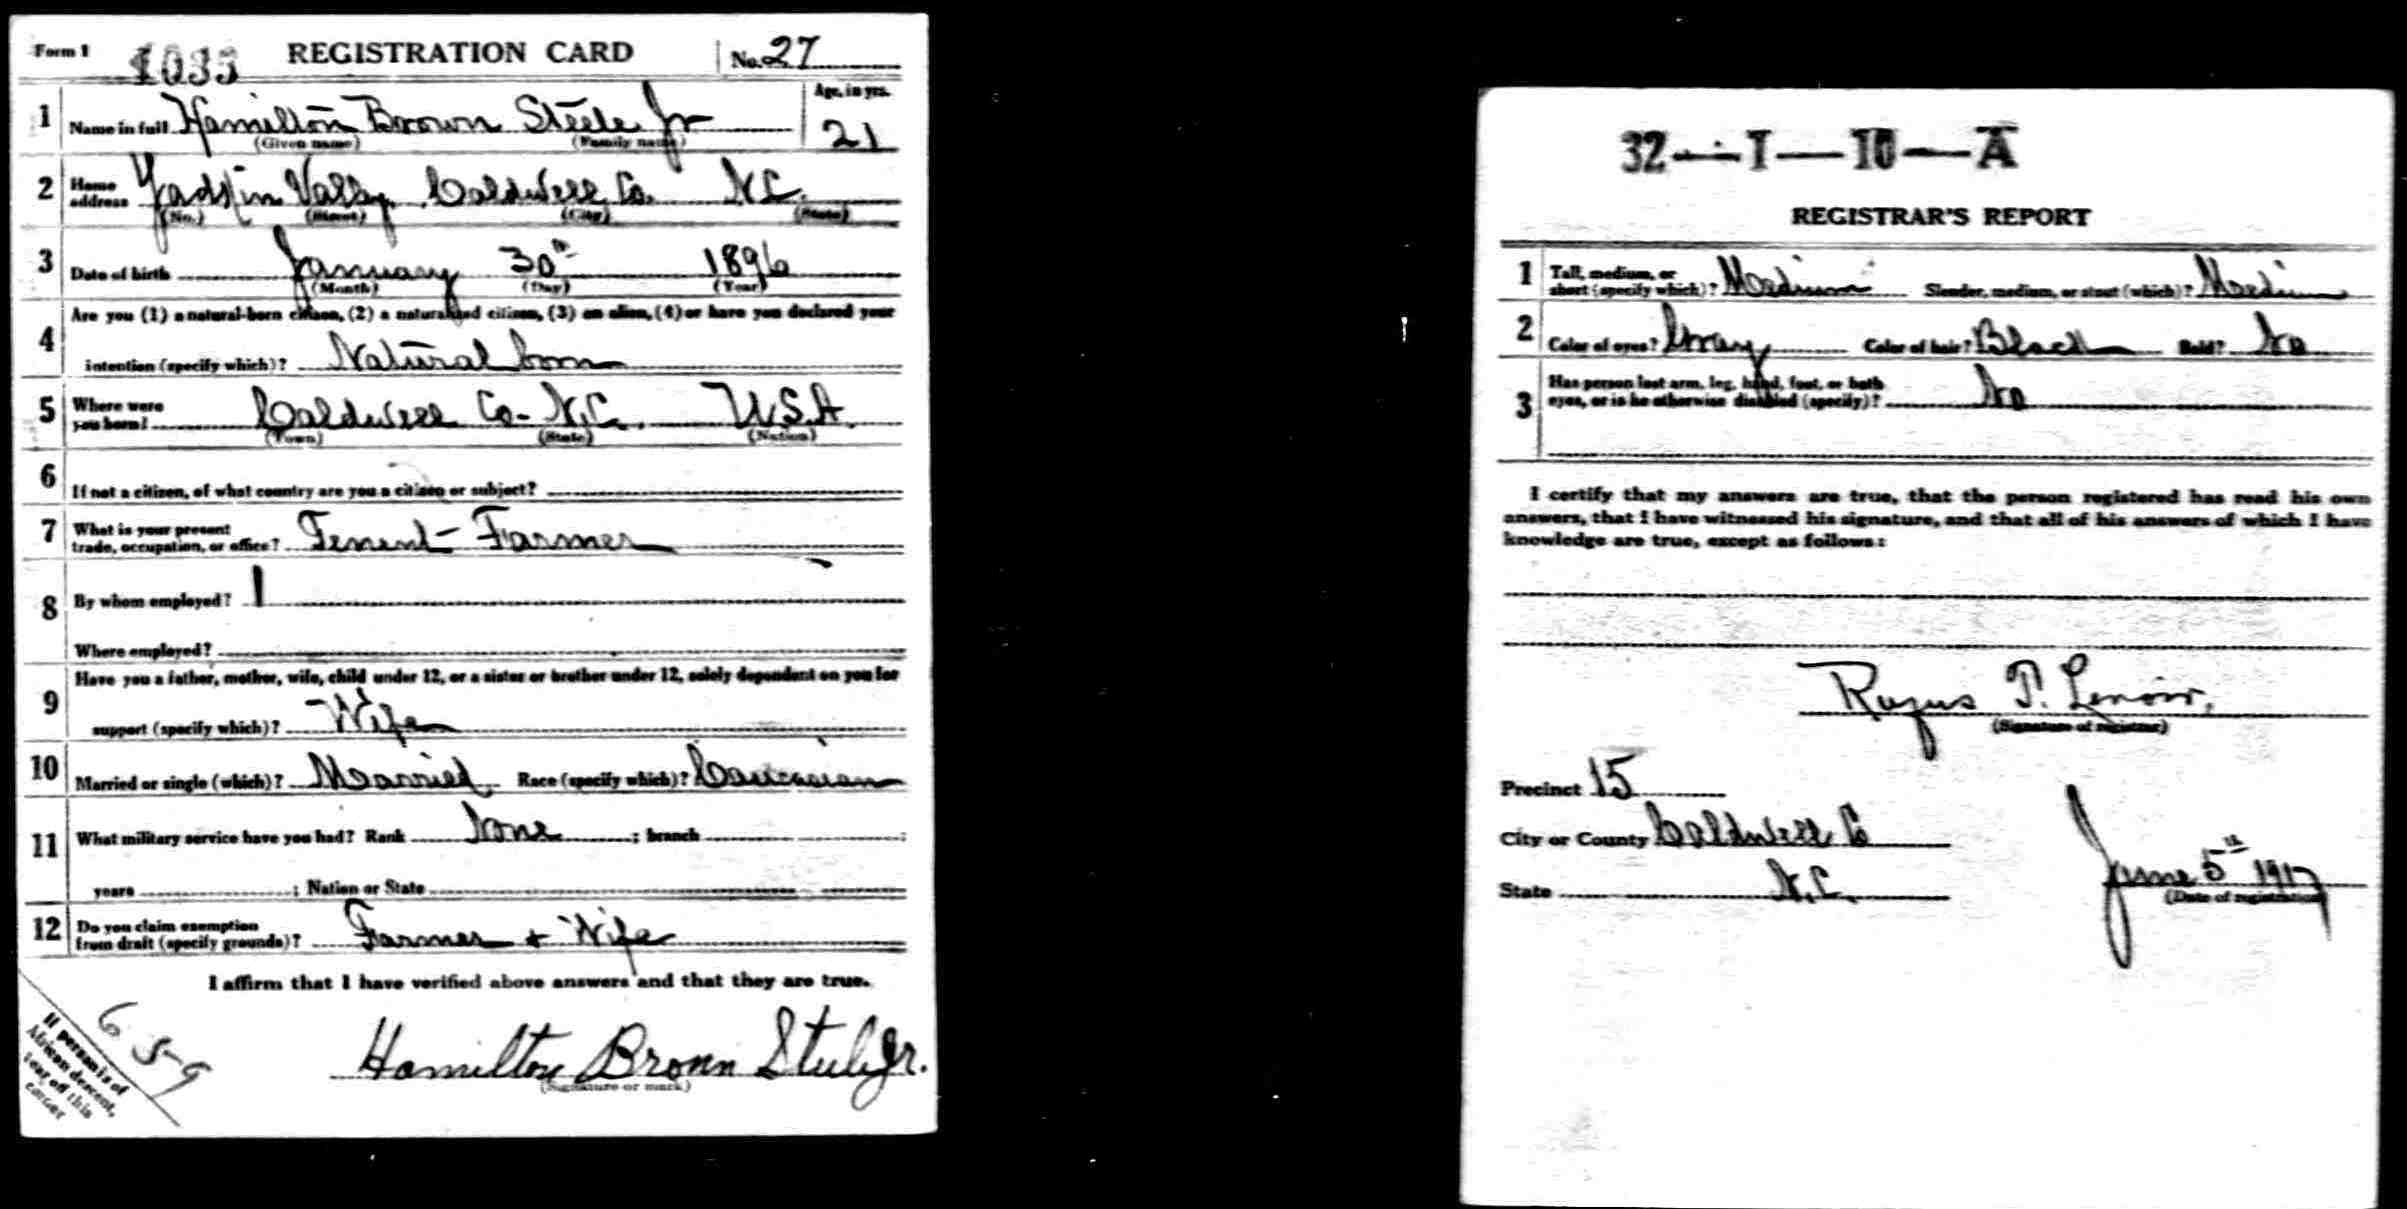 Form 1 1033 REGISTRATION CARD No. 27
1 Name in full Hamilton Brown Steele Jr Age, in yrs. 21
(Given name) (Family name)
2 Home address Yadkin Valley, Caldwell Co. N.C.
(No.) (Street) (City) (State)
3 Date of birth January 30th 1896
(Month) (Day) (Year)
4 Are you (1) a natural-born citizen, (2) a naturalized citizen, (3) an alien, (4) or have you declared your
intention (specify which)? Natural born
5 Where were you born? Caldwell Co- N.C. U.S.A.
(Town) (State) (Nation)
6 If not a citizen, of what country are you a citizen or subject?
7 What is your present
trade, occupation, or office? Tenent- Farmer
8 By whom employed?
Where employed?
9 Have you a father, mother, wife, child under 12, or a sister or brother under 12, solely dependent on you for
support (specify which)? Wife
10 Married or single (which)? Married Race (specify which)? Caucasian
11 What military service have you had? Rank None ; branch ;
years ; Nation or State
12 Do you claim exemption
from draft (specify grounds)? Farmer + Wife
I affirm that I have verified above answers and that they are true.
Hamilton Brown Steele Jr.
(Signature or mark)
If person is of
African descent,
tear off this
corner
32—1—10—A
REGISTRAR'S REPORT
1 Tall, medium, or
short (specify which)? Medium Slender, medium, or stout (which)? Medium
2 Color of eyes? Gray Color of hair? Black Bald? No
3 Has person lost arm, leg, hand, foot, or both
eyes, or is he otherwise disabled (specify)? No
I certify that my answers are true, that the person registered has read his own
answers, that I have witnessed his signature, and that all of his answers of which I have
knowledge are true, except as follows:
Rufus T. Lenoir.
(Signature of registrar)
Precinct 15
City or County Caldwell Co
State N.C.
June 5th 1917
(Date of registration)